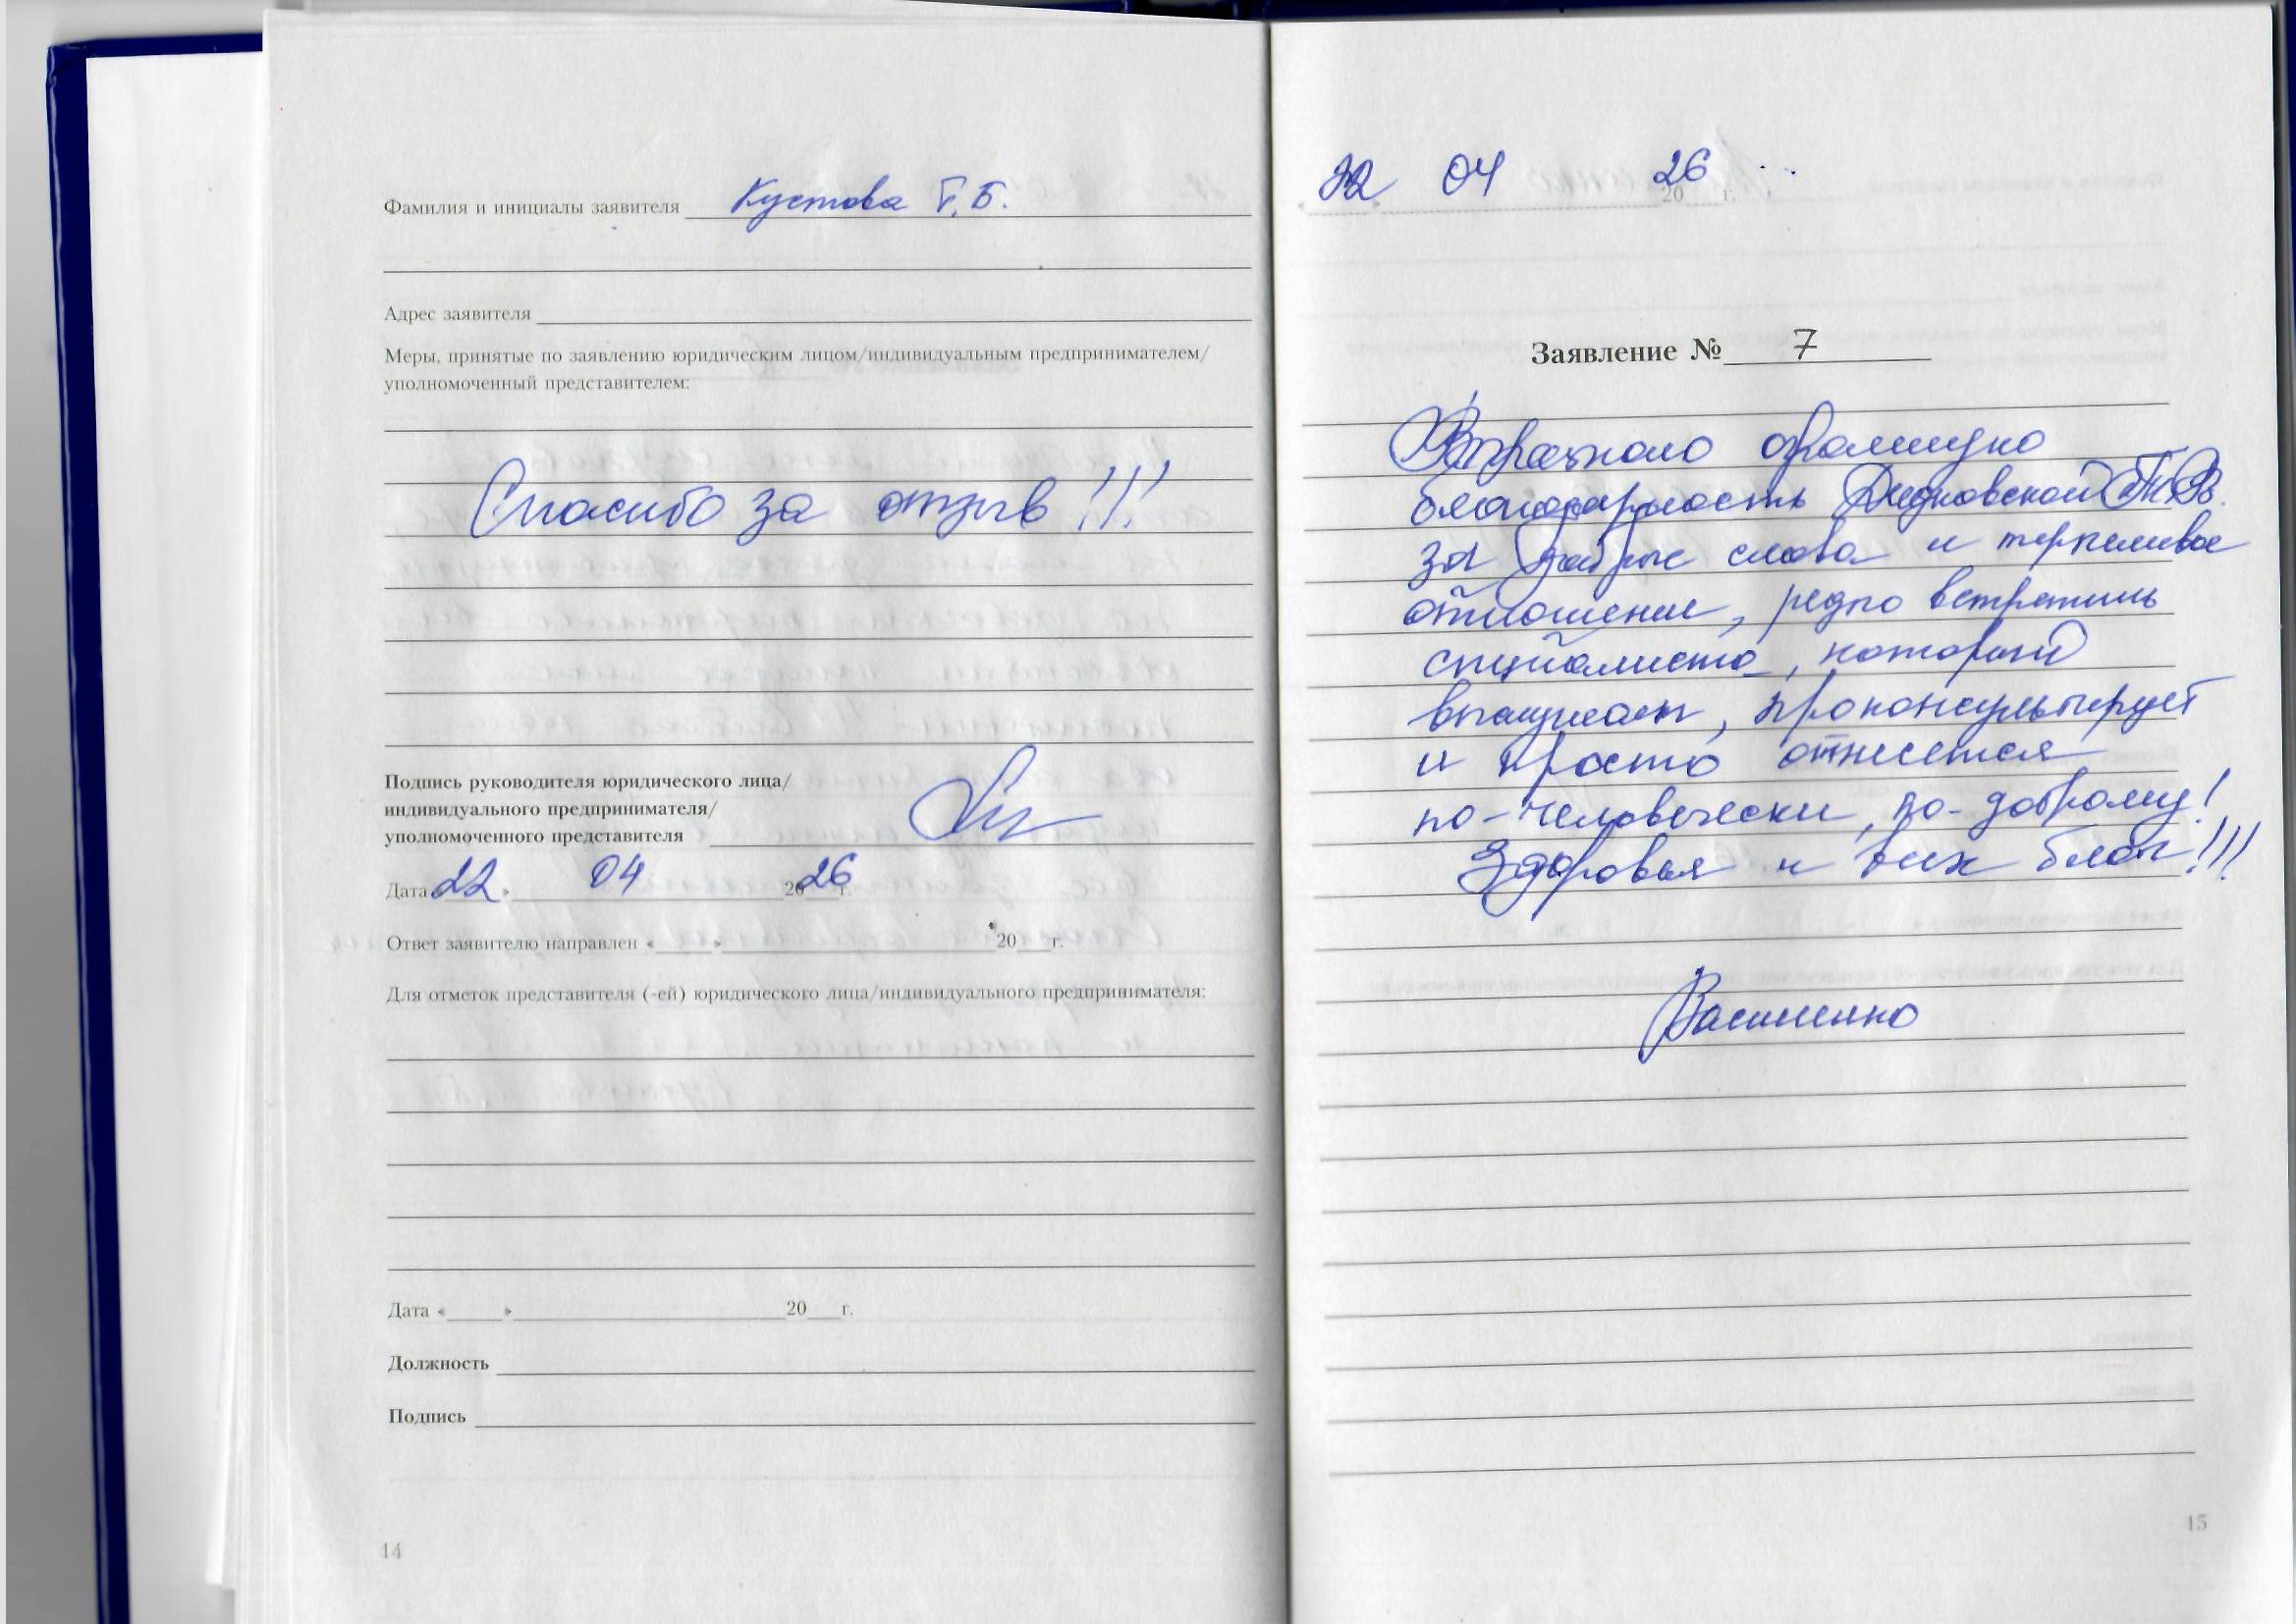 Фамилия и инициалы заявителя Кустова Т.Б.
Адрес заявителя
Меры, принятые по заявлению юридическим лицом/индивидуальным предпринимателем/
уполномоченный представителем:
Спасибо за отзыв!!!
Подпись руководителя юридического лица/
индивидуального предпринимателя/
уполномоченного представителя
Дата 22 » 04 2026 г.
Ответ заявителю направлен « » 20 г.
Для отметок представителя (-ей) юридического лица/индивидуального предпринимателя:
Дата « » 20 г.
Должность
Подпись
14
22 04 2026 г.
Заявление № 7
огромную
благодарность
за добрые слова и терпеливое
отношение, редко встретишь
специалиста, который
выслушает, проконсультирует
и просто отнесется
по-человечески, по-доброму!
Здоровья и всех благ!!!
15